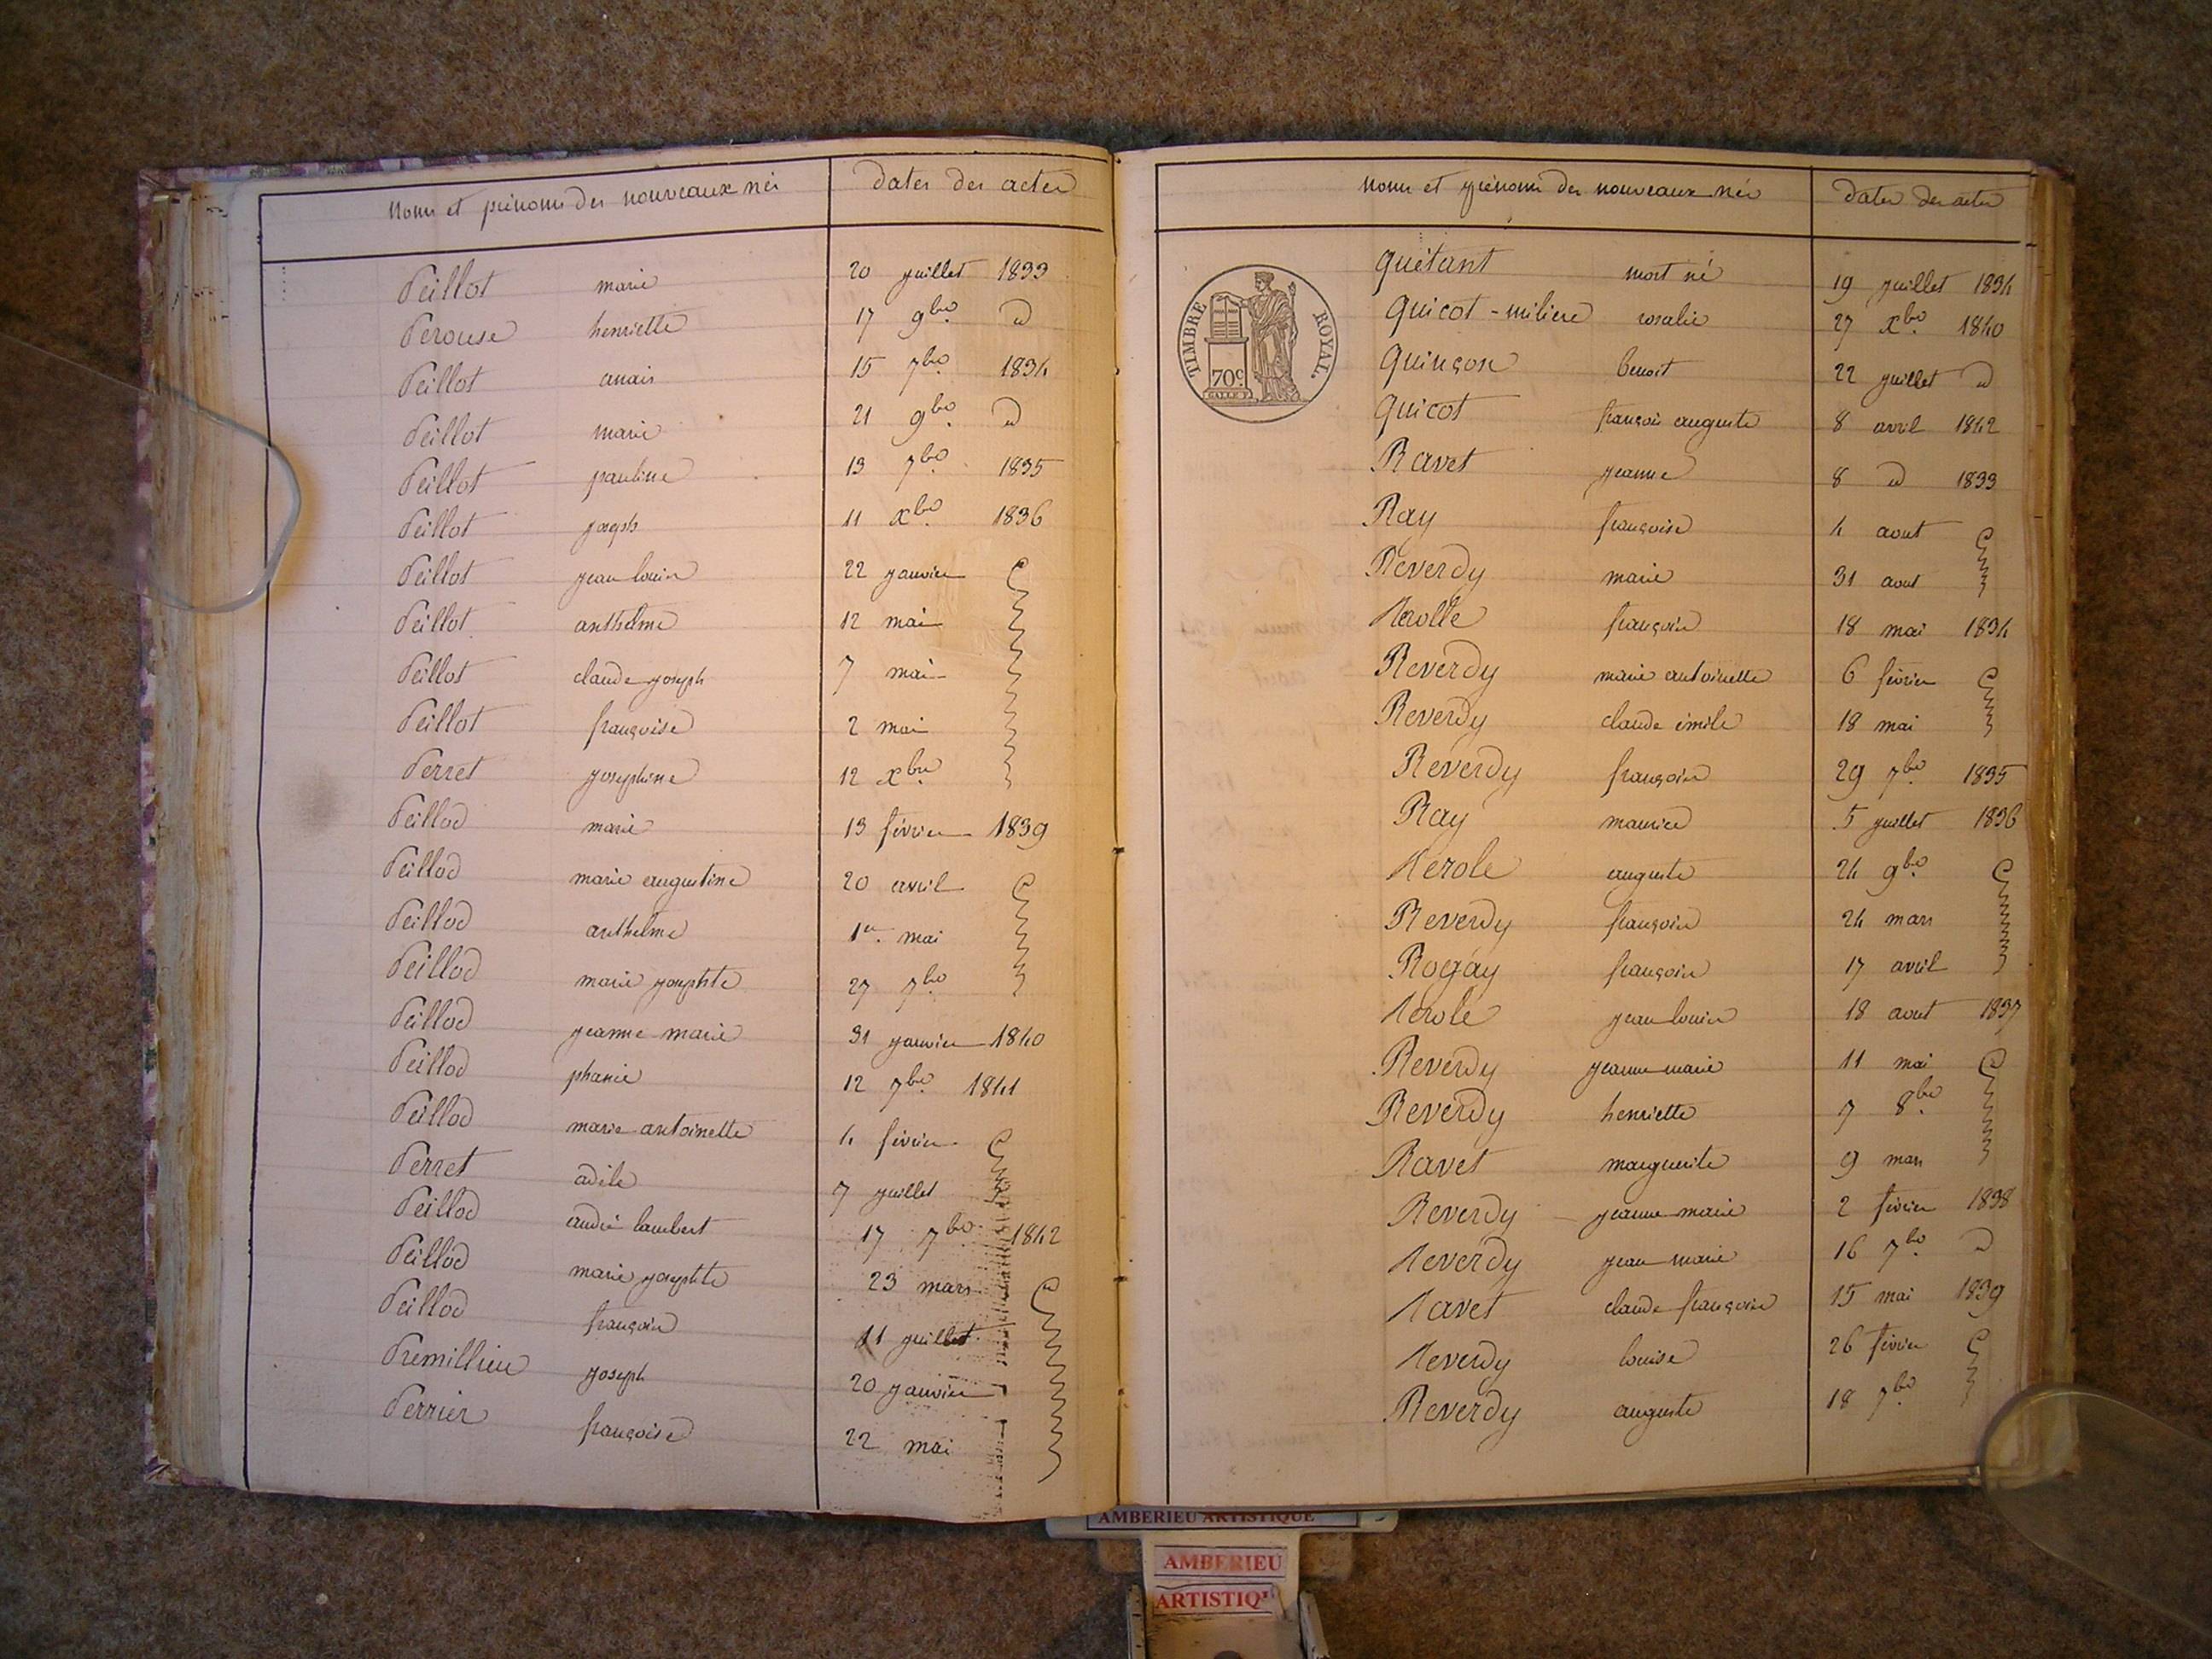 noms et prénoms des nouveaux nés dates des actes
Peillot marie 20 juillet 1833
Perouse henriette 17 9bre d
Peillot anais 15 7bre 1834
Peillot marie 21 9bre d
Peillot pauline 13 7bre 1835
Peillot joseph 11 xbre 1836
Peillot jean louis 22 janvier
Peillot anthelme 12 mai
Peillot claude joseph 7 mai
Peillot françoise 2 mai
Perret josephine 12 xbre
Peillod marie 13 février 1839
Peillod marie augustine 20 avril
Peillod anthelme 1er mai
Peillod marie josephte 27 7bre
Peillod jeanne marie 31 janvier 1840
Peillod phanie 12 7bre 1841
Peillod marie antoinette 4 février
Perret adèle 7 juillet
Peillod andré lambert 17 7bre 1842
Peillod marie josephte 23 mars
Peillod françois 11 juillet
Premillieu joseph 20 janvier
Perrier françoise 22 mai
noms et prénoms des nouveaux nés dates des actes
TIMBRE ROYAL.
70c.
quétant mort né 19 juillet 1834
quicot-miliere rosalie 27 xbre 1840
quinçon benoit 22 juillet d
quicot françois auguste 8 avril 1842
Ravet jeanne 8 d 1833
Ray françoise 4 aout
Reverdy marie 31 aout
Rerolle françois 18 mai 1834
Reverdy marie antoinette 6 février
Reverdy claude émile 18 mai
Reverdy françois 29 7bre 1835
Ray maurice 5 juillet 1836
Rerole auguste 24 9bre
Reverdy françois 24 mars
Rogay françois 17 avril
Rerole jean louis 18 aout 1837
Reverdy jeanne marie 11 mai
Reverdy henriette 7 8bre
Ravet marguerite 9 mars
Reverdy jeanne marie 2 février 1838
Reverdy jean marie 16 7bre d
Ravet claude françois 15 mai 1839
Reverdy louise 26 février
Reverdy auguste 18 7bre
AMBERIEU ARTISTIQUE
AMBERIEU
ARTISTIQ